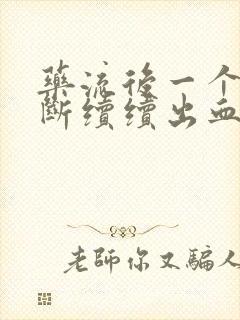 藥流後一个
斷續續出血
老師你又騙人